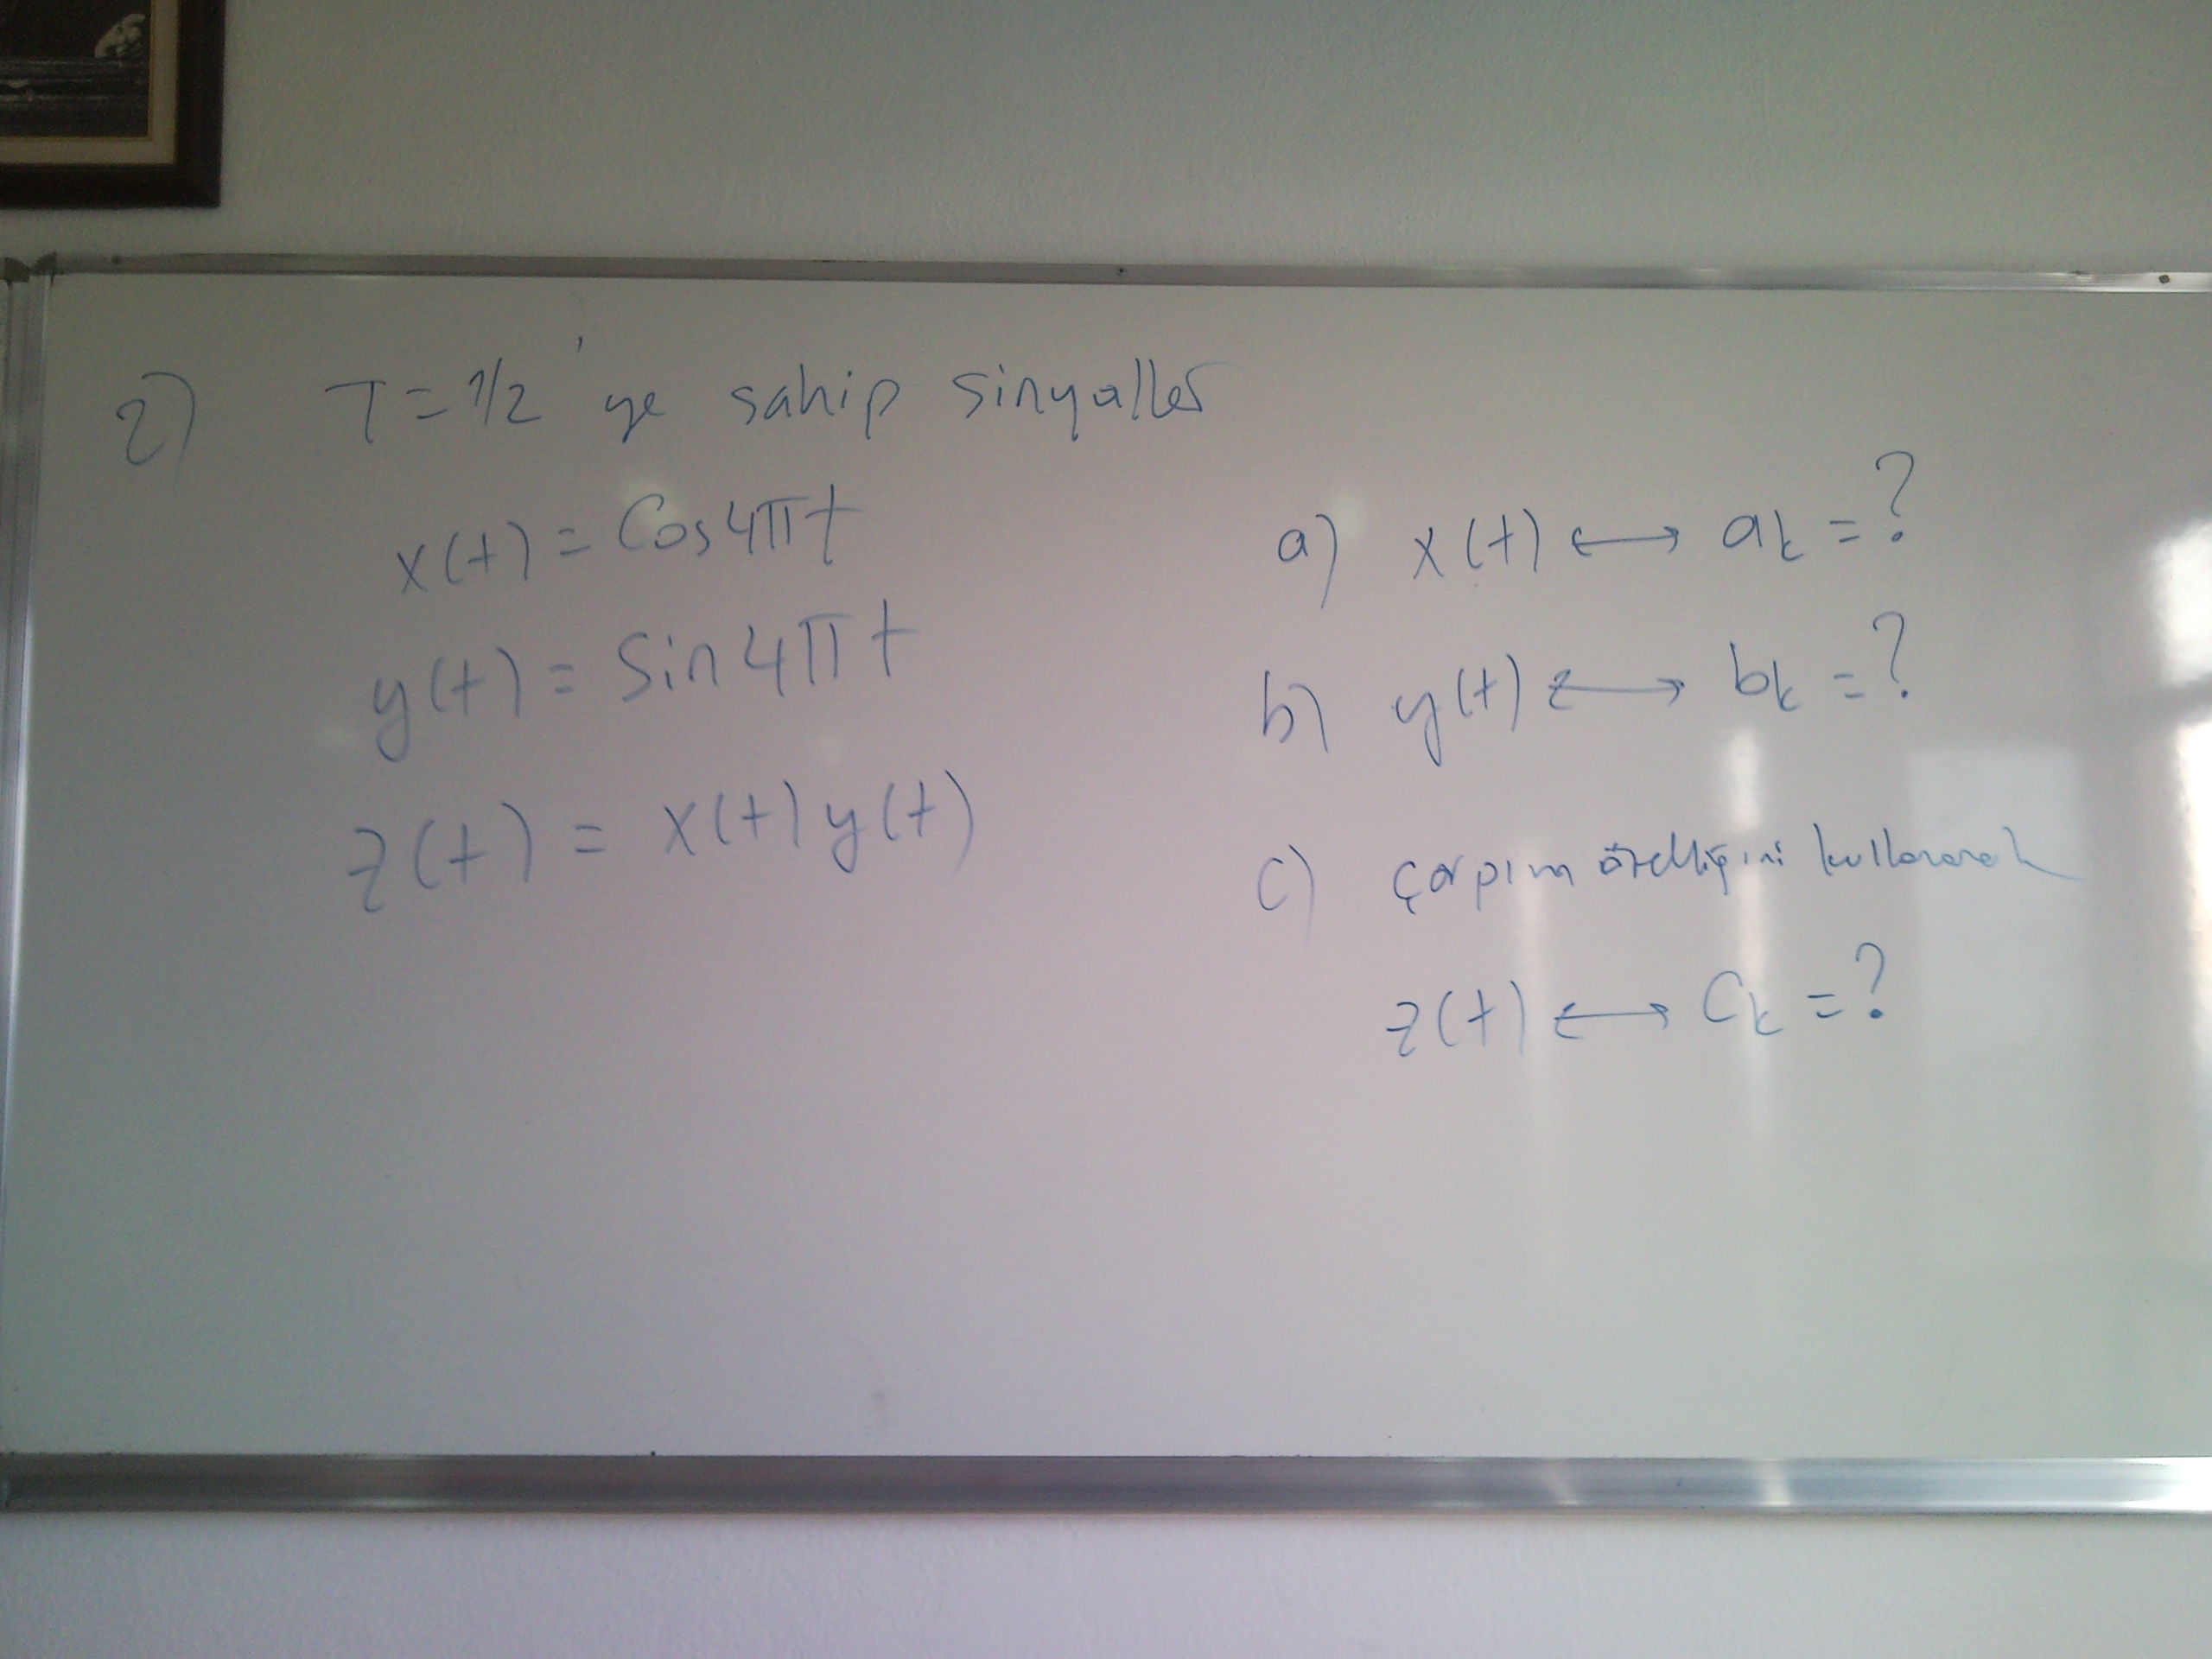 2) T = 1/2 'ye sahip sinyaller
x(t) = Cos4πt
y(t) = Sin4πt
z(t) = x(t) y(t)
a) x(t) ↔ ak = ?
b) y(t) ↔ bk = ?
c) Çarpım özelliğini kullanarak
z(t) ↔ Ck = ?